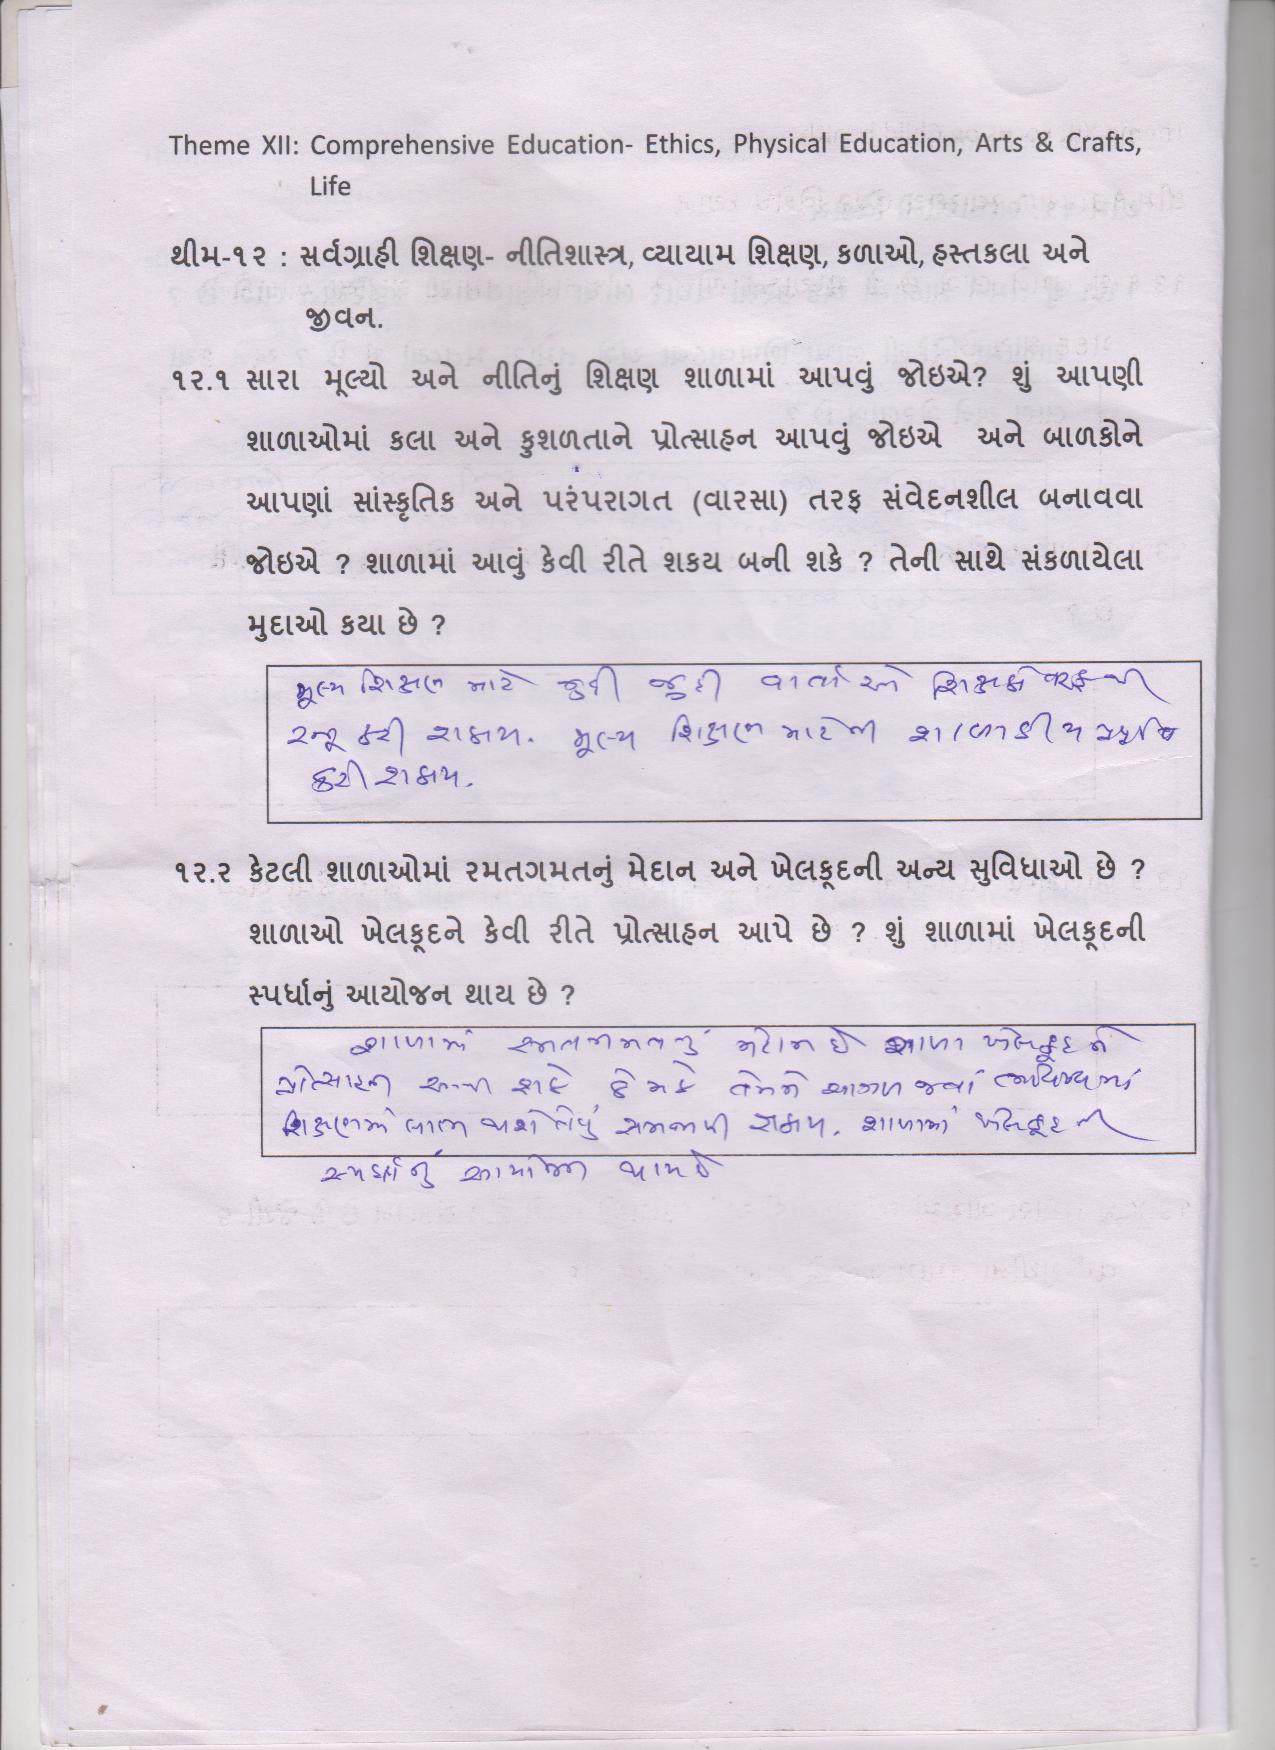 Theme XII: Comprehensive Education- Ethics, Physical Education, Arts & Crafts,
Life
થીમ-૧૨ : સર્વગ્રાહી શિક્ષણ- નીતિશાસ્ત્ર, વ્યાયામ શિક્ષણ, કળાઓ, હસ્તકલા અને
જીવન.
૧૨.૧ સારા મૂલ્યો અને નીતિનું શિક્ષણ શાળામાં આપવું જોઇએ? શું આપણી
શાળાઓમાં કલા અને કુશળતાને પ્રોત્સાહન આપવું જોઇએ અને બાળકોને
આપણાં સાંસ્કૃતિક અને પરંપરાગત (વારસા) તરફ સંવેદનશીલ બનાવવા
જોઇએ ? શાળામાં આવું કેવી રીતે શકય બની શકે ? તેની સાથે સંકળાયેલા
મુદાઓ કયા છે ?
મૂલ્ય શિક્ષણ માટે જુદી જુદી વાર્તાઓ શિક્ષકો તરફથી
રજૂ કરી શકાય. મૂલ્ય શિક્ષણ માટેની શાળાકીય પ્રવૃત્તિ
કરી શકાય.
૧૨.૨ કેટલી શાળાઓમાં રમતગમતનું મેદાન અને ખેલકૂદની અન્ય સુવિધાઓ છે ?
શાળાઓ ખેલકૂદને કેવી રીતે પ્રોત્સાહન આપે છે ? શું શાળામાં ખેલકૂદની
સ્પર્ધાનું આયોજન થાય છે ?
શાળામાં રમતગમતનું મેદાન છે શાળા ખેલકૂદને
પ્રોત્સાહન આપી શકે જેમકે તેમને આગળ જતાં ભવિષ્યમાં
શિક્ષણમાં લાભ થશે તેવું સમજાવી શકાય. શાળામાં ખેલકૂદની
સ્પર્ધાનું આયોજન થાય છે